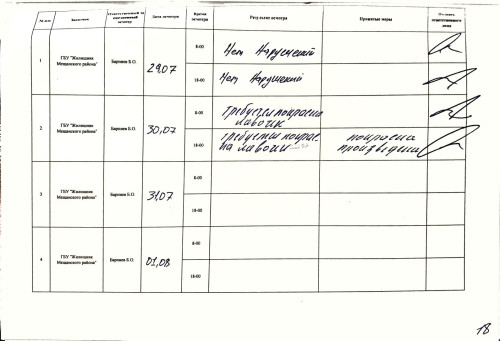 № п/п Заказчик Ответственный за ежедневный осмотр Дата осмотра Время осмотра Результат осмотра Принятые меры Подпись ответственного лица
1 ГБУ "Жилищник Мещанского района" Баринов Б.О. 29,07
8-00 Нет Нарушений
18-00 Нет Нарушений
2 ГБУ "Жилищник Мещанского района" Баринов Б.О. 30,07
8-00 требуется покраска
лавочек
18-00 требуется покрас- покраска
ка лавочки произведена
3 ГБУ "Жилищник Мещанского района" Баринов Б.О. 31,07
8-00
18-00
4 ГБУ "Жилищник Мещанского района" Баринов Б.О. 01,08
8-00
18-00
18